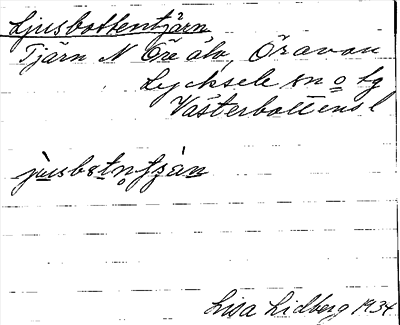 Ljusbottentjärn
Tjärn N Öre älv, Öravan
Lycksele sn o tg
Västerbottens l
Lisa Lidberg 1934